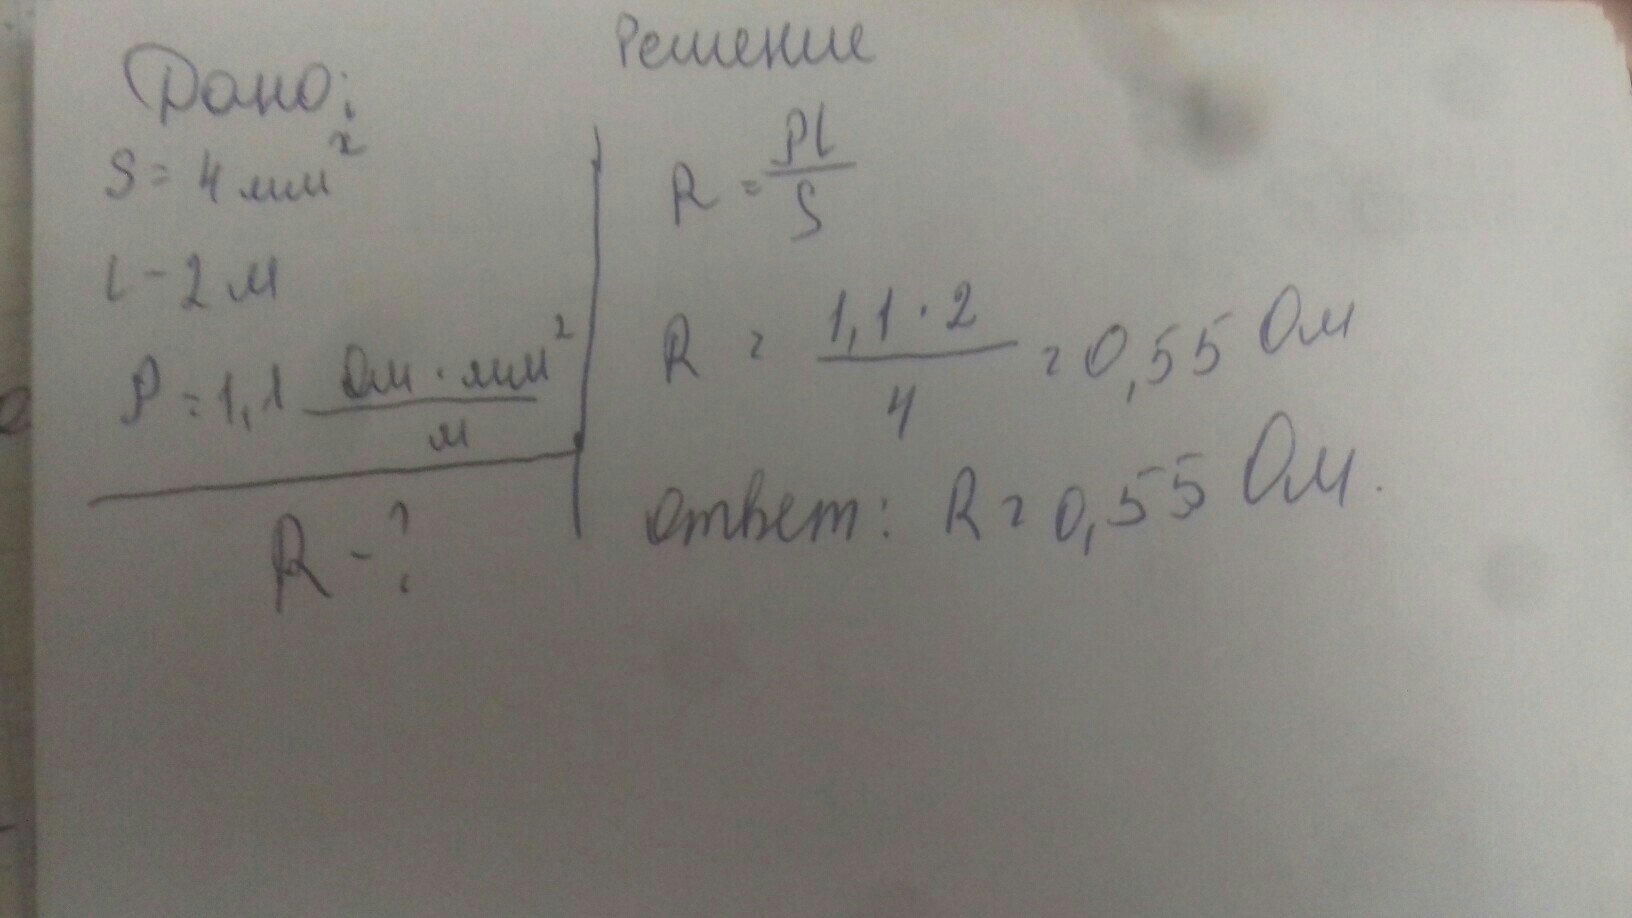 Дано:
S = 4 мм²
l - 2 м
ρ = 1,1 Ом · мм² / м
R - ?
Решение
R = ρl / S
R = 1,1 · 2 / 4 = 0,55 Ом
Ответ: R = 0,55 Ом.